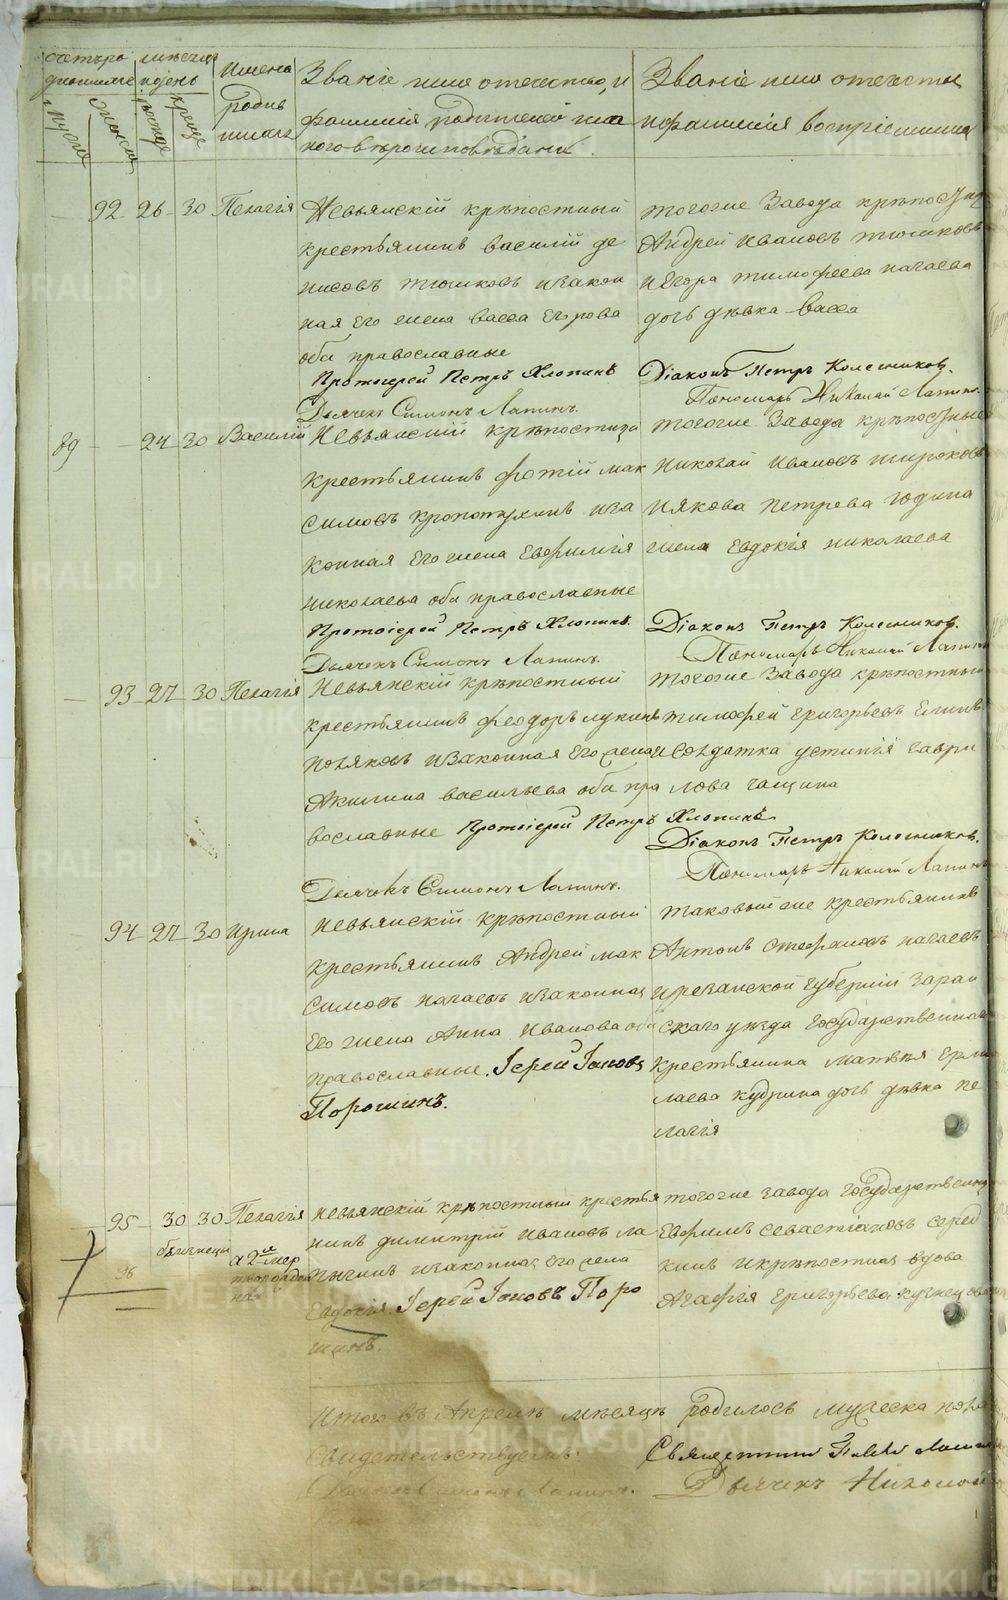 Званіе имя отечество и
фамилія родителей и ка
кого вѣроисповѣданія.
Званіе имя отечество
и фамилія воспріемника
Имена
родив
шихся
92 26 30 Пелагія
Невьянскій крѣпостный
крестьянинъ василій де
нисовъ тюшковъ изакон
ная Его жена васса Егорова
оба православные
Протоіерей Петръ Хлопинъ
Дьячекъ Симонъ Лапинъ.
тогоже Завода крѣпостн
Андрей ивановъ тюшковъ
иЕгора тимофеева нагаева
дочь дѣвка васса
Діаконъ Петръ Колесников.
Пономарь Николай Лапин.
89 24 30 Василій
Невьянскій крѣпостный
крестьянинъ фотій мак
симовъ кропотухинъ иза
конная Его жена Евфимія
николаева оба православные
Протоіерей Петръ Хлопинъ.
Дьячекъ Симонъ Лапинъ.
тогоже Завода крѣпостные
николай ивановъ широковъ
иякова петрева година
жена Евдокія николаева
Діаконъ Петръ Колесников.
Пономарь Николай Лапин
93 27 30 Пелагія
Невьянскій крѣпостный
крестьянинъ феодоръ лукинъ
поляковъ изаконная Его жена
Акилина васильева оба пра
вославные Протоіерей Петръ Хлопинъ
Дьячекъ Симонъ Лапинъ.
тогоже Завода крѣпостный
тимофей григорьевъ
исолдатка устинія гаври
лова гащина
Діаконъ Петръ Колесников.
Пономарь Николай Лапин
94 27 30 Ирина
Невьянскій крѣпостный
крестьянинъ Андрей мак
симовъ нагаевъ изаконная
Его жена Анна Иванова оба
православные. Іерей Іаковъ
Порошинъ.
таковый же крестьянинъ
Антонъ стефановъ нагаевъ
ирезанской губерніи Зарай
скаго уѣзда государственнаго
крестьянина матвѣя Ерми
лаева кудрина дочь дѣвка пе
лагія
95 30 30 Пелагія
96 близнецы
а 2я мер
творожден
ная
невьянскій крѣпостный крестья
нинъ димитрій Ивановъ ла
пычинъ изаконная Его жена
Евдокія Іерей Іаковъ Поро
шинъ.
тогоже завода государственн
Евфимъ севастіановъ серед
кинъ икрѣпостная вдова
Агафія григорьева кузнецова
итого въ Апрелѣ мѣсяцѣ родилось мужеска пола
Свидетельствуемъ:
Священникъ Павелъ
Дьячекъ Симонъ Лапинъ.
Дьячекъ Николай
METRIKI.GASO-URAL.RU